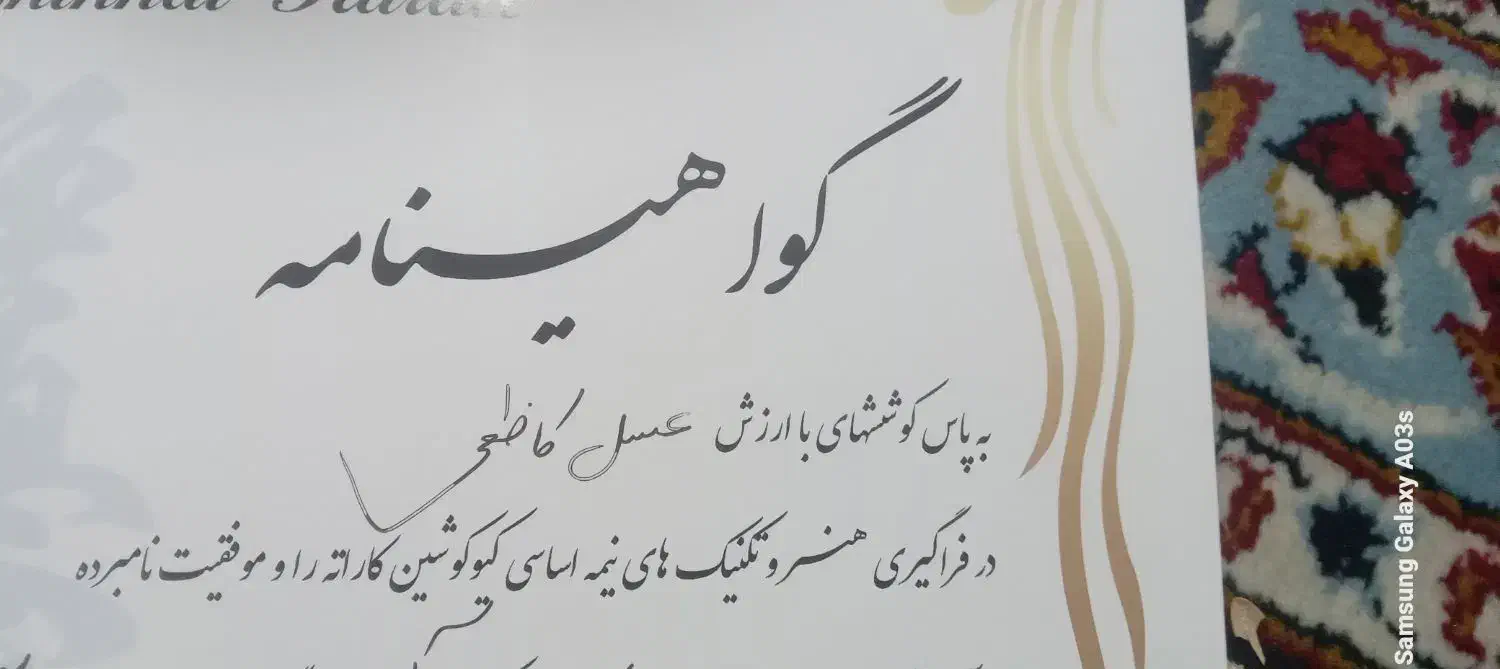 گواهینامه
به پاس کوششهای با ارزش عسل کاظمی
در فراگیری هنر و تکنیک های نیمه اساسی کیوکوشین کاراته را و موفقیت نامبرده
Samsung Galaxy A03s